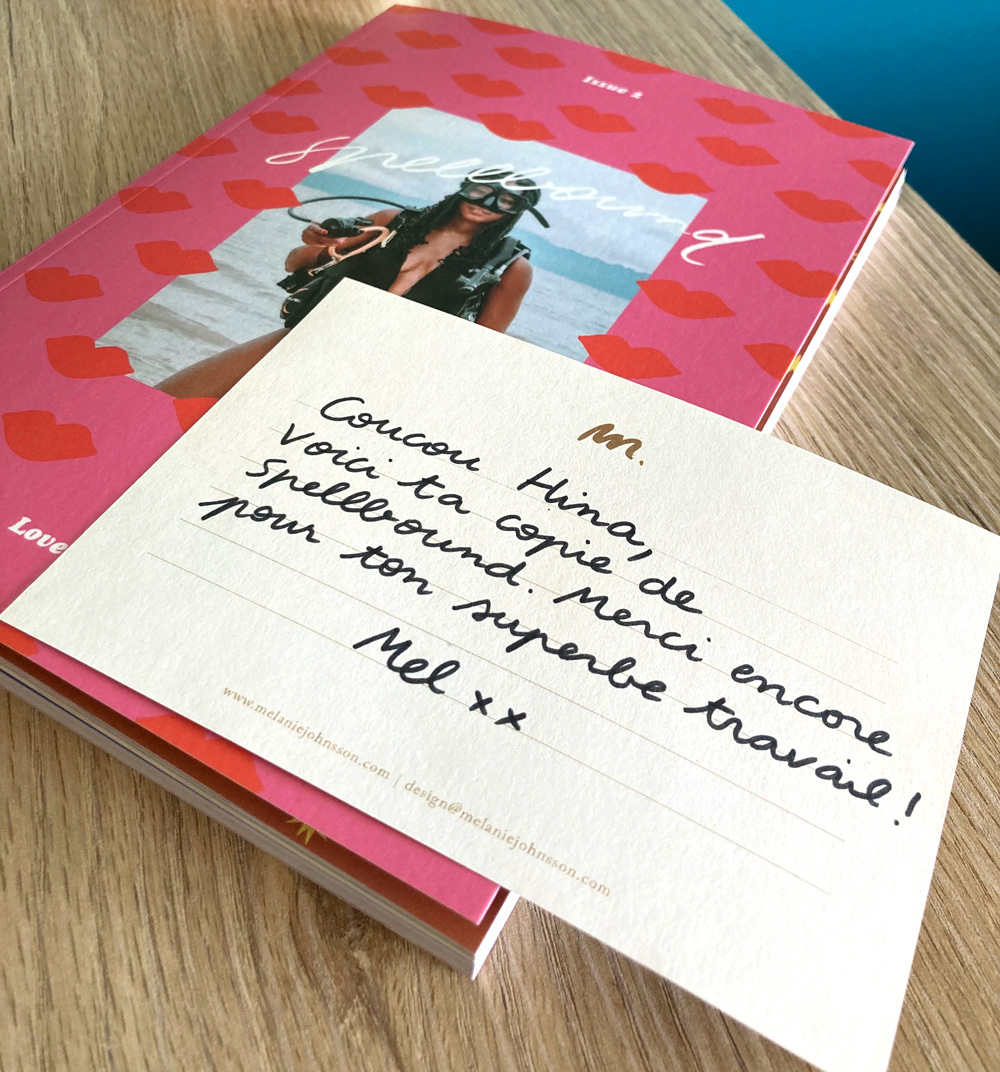 Issue 2
spellbound
Love
m.
Coucou Hina,
Voici ta copie de
Spellbound. Merci encore
pour ton superbe travail!
Mel xx
www.melaniejohnsson.com | design@melaniejohnsson.com